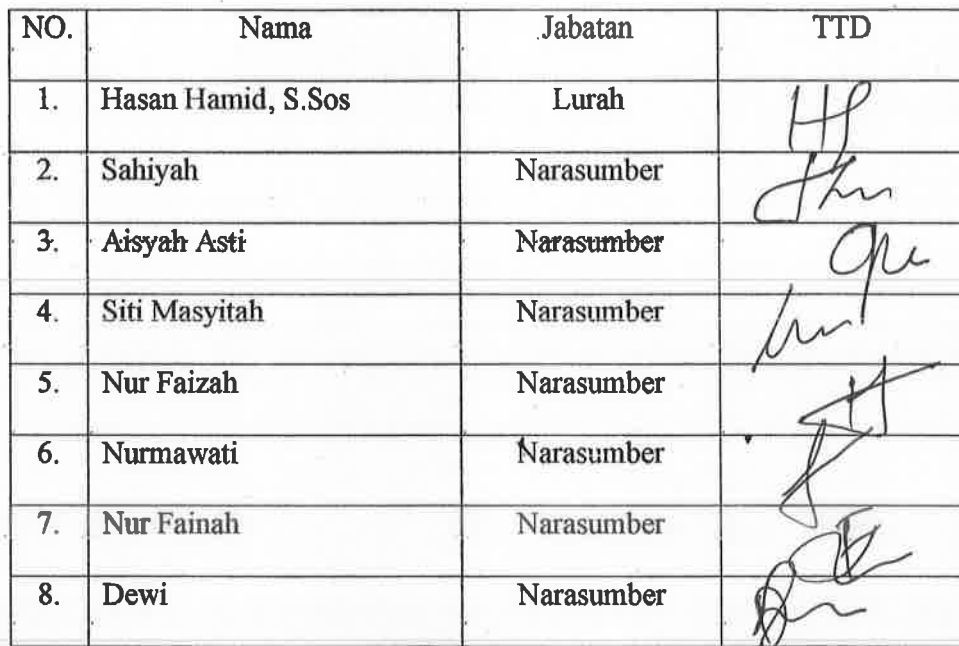 NO. Nama Jabatan TTD
1. Hasan Hamid, S.Sos Lurah
2. Sahiyah Narasumber
3. Aisyah Asti Narasumber
4. Siti Masyitah Narasumber
5. Nur Faizah Narasumber
6. Nurmawati Narasumber
7. Nur Fainah Narasumber
8. Dewi Narasumber